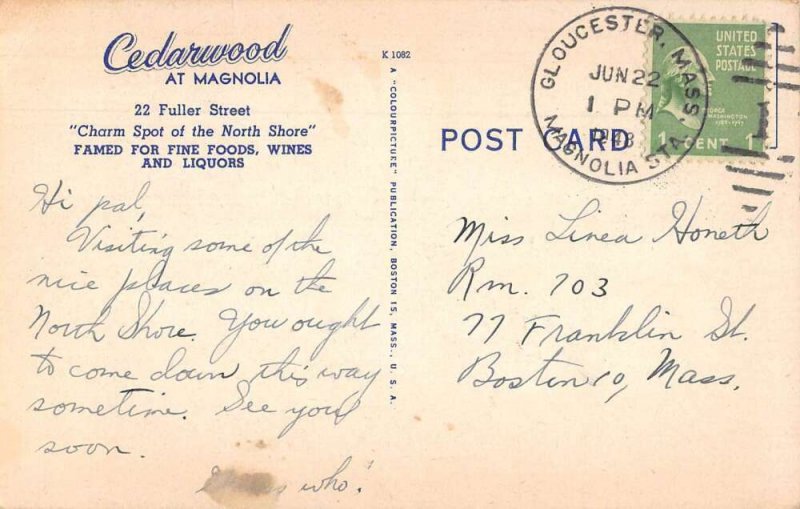 Cedarwood
AT MAGNOLIA
22 Fuller Street
"Charm Spot of the North Shore"
FAMED FOR FINE FOODS, WINES
AND LIQUORS
Hi pal,
Visiting some of the
nice places on the
North Shore. You ought
to come down this way
sometime. See you
soon.
who!
K 1082
A "COLOURPICTURE" PUBLICATION, BOSTON 15, MASS., U.S.A.
POST CARD
GLOUCESTER, MASS.
JUN 22
1 PM
MAGNOLIA STA.
UNITED
STATES
POSTAGE
GEORGE
WASHINGTON
1 CENT 1
Miss Linea Honeth
Rm. 703
77 Franklin St.
Boston 10, Mass.